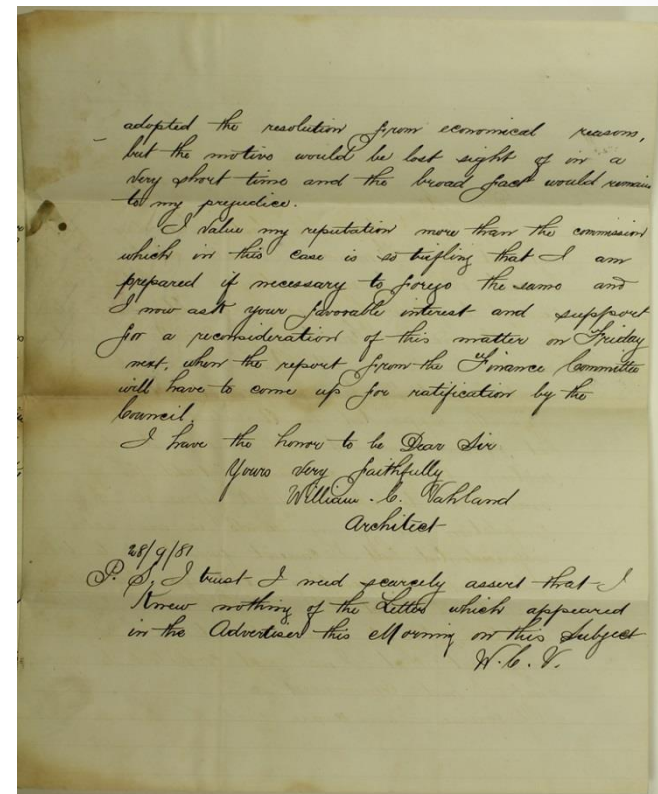 adopted the resolution from economical reasons,
but the motive would be lost sight of in a
very short time and the broad fact would remain
to my prejudice.
I value my reputation more than the commission
which in this case is so trifling that I am
prepared if necessary to forego the same and
I now ask your favorable interest and support
for a reconsideration of this matter on Friday
next, when the report from the Finance Committee
will have to come up for ratification by the
Council.
I have the honor to be Dear Sir
Yours very faithfully
William. C. Vahland
Architect
28/9/81
P. S. I trust I need scarcely assert that I
knew nothing of the Letter which appeared
in the Advertiser this Morning on this Subject
W. C. V.